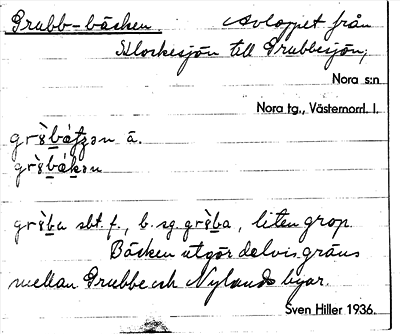 Grubb-bäcken. Avloppet från
Klockesjön till Grubbesjön;
Nora s:n
Nora tg., Västernorrl. l.
grɜ̀bátʒən ä.
grɜ̀bákən
grɜ̀ba sbt. f., b. sg. grɜ̀ba, liten grop.
Bäcken utgör delvis gräns
mellan Grubbe och Nylands byar.
Sven Hiller 1936.